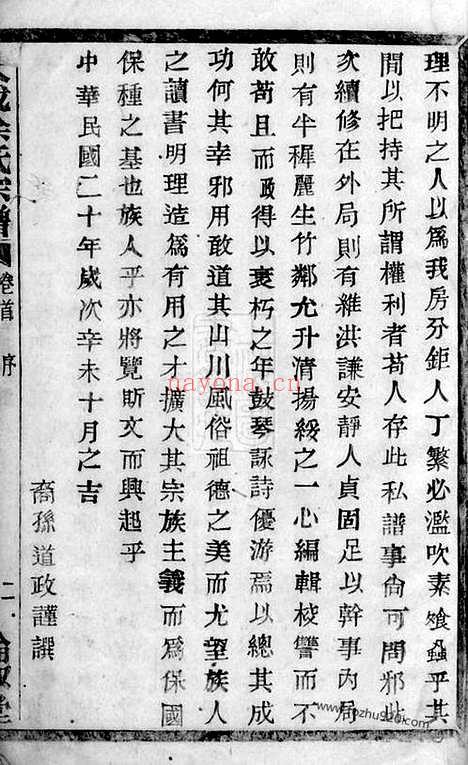 理不明之人以爲我房分鉅人丁繁必濫吹素飧蝨乎其
間以把持其所謂權利者苟人存此私譜事尙可問邪此
次續修在外局則有維洪謙安靜人貞固足以幹事內局
則有半穉麗生竹鄰允升淸揚綏之一心編輯校讐而不
敢苟且而政得以衰朽之年鼓琴詠詩優游焉以總其成
功何其幸邪用敢道其山川風俗祖德之美而尤望族人
之讀書明理造爲有用之才擴大其宗族主義而爲保國
保種之基也族人乎亦將覽斯文而興起乎
中華民國二十年歲次辛未十月之吉
裔孫道政謹譔
余氏宗譜
卷首 序
二
堂
nayona.cn
pzhu920.com